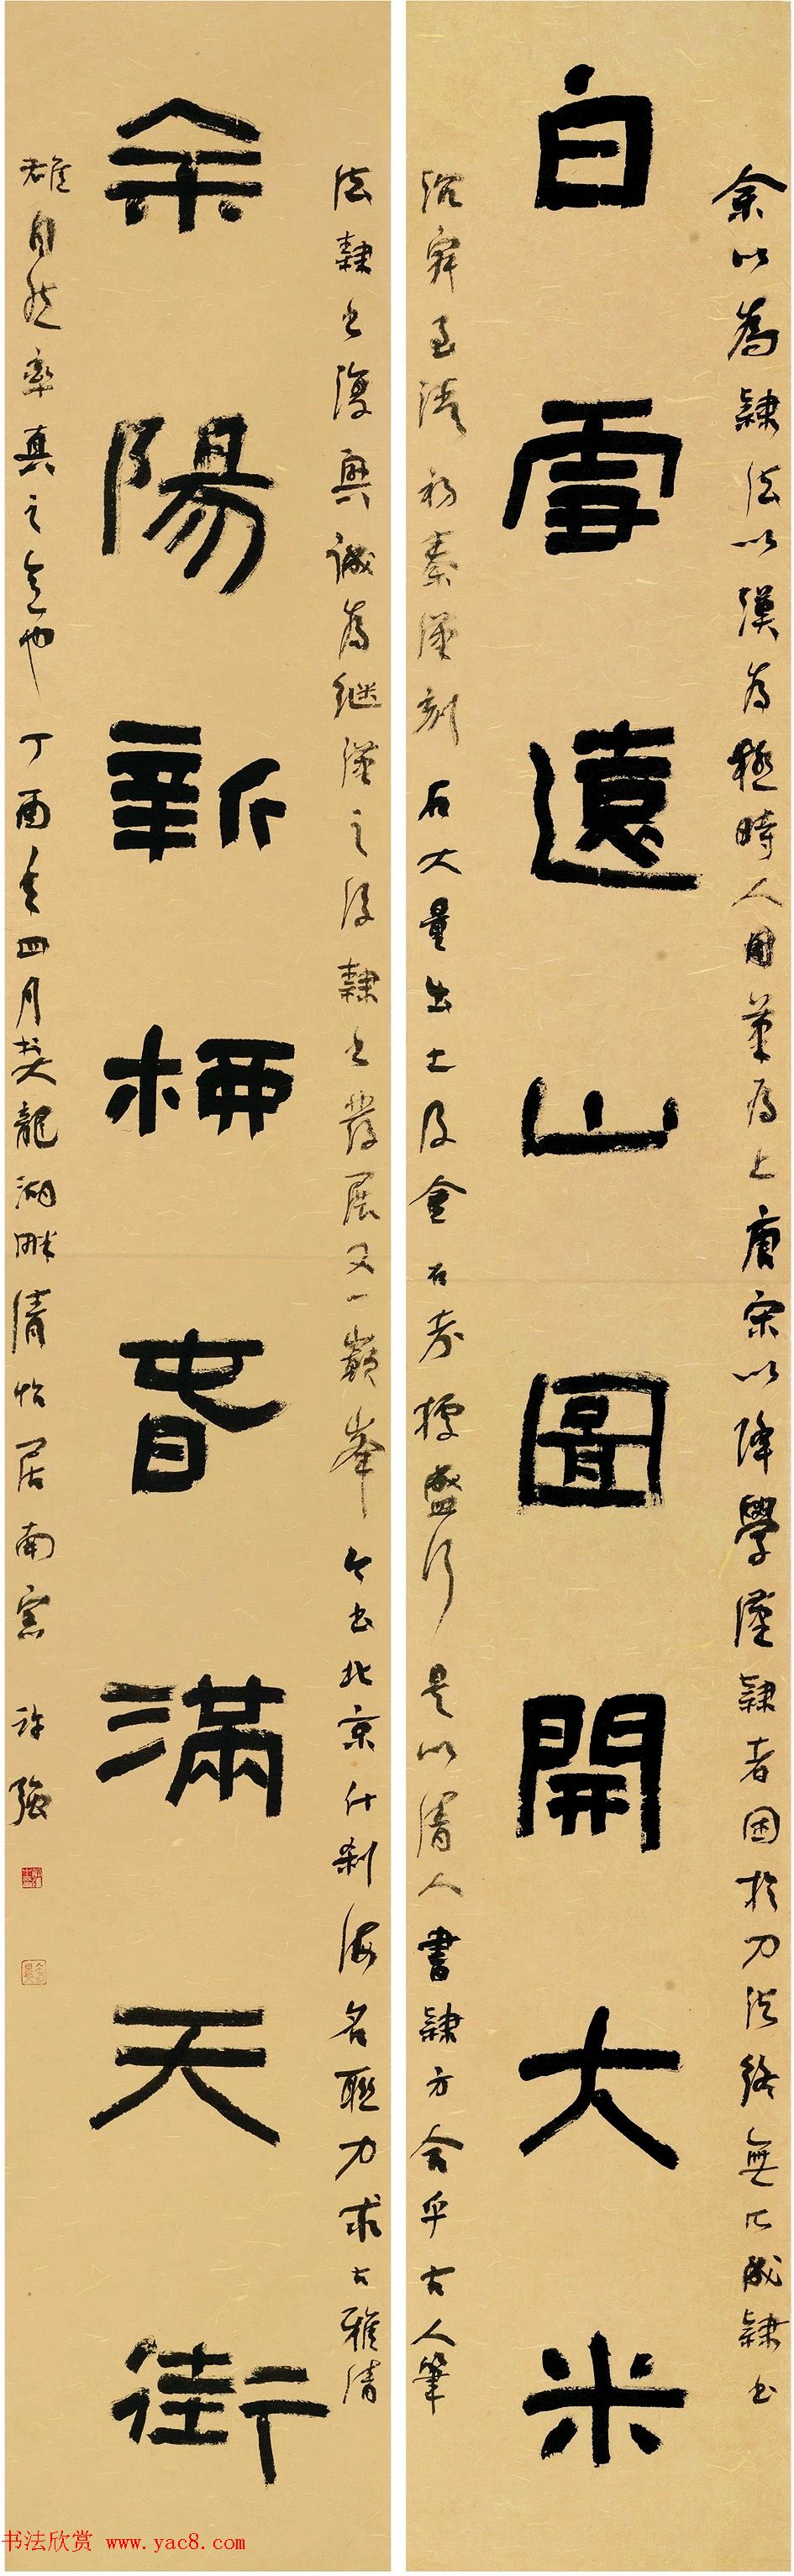 白雪遠山圖開大米
余陽新柳春滿天街
余以為隸法以漢為極時人用筆為上唐宋以降學漢隸者困於刀法終無以成隸書
石大量出土及金石考據盛行是以清人書隸方合乎古人筆
法隸書復興誠為繼漢之後隸書發展又一巔峯今書北京什刹海名聯力求古雅清
雄自然率真之意也丁酉年四月於大龍湖畔清怡居南窗許強
书法欣赏 www.yac8.com